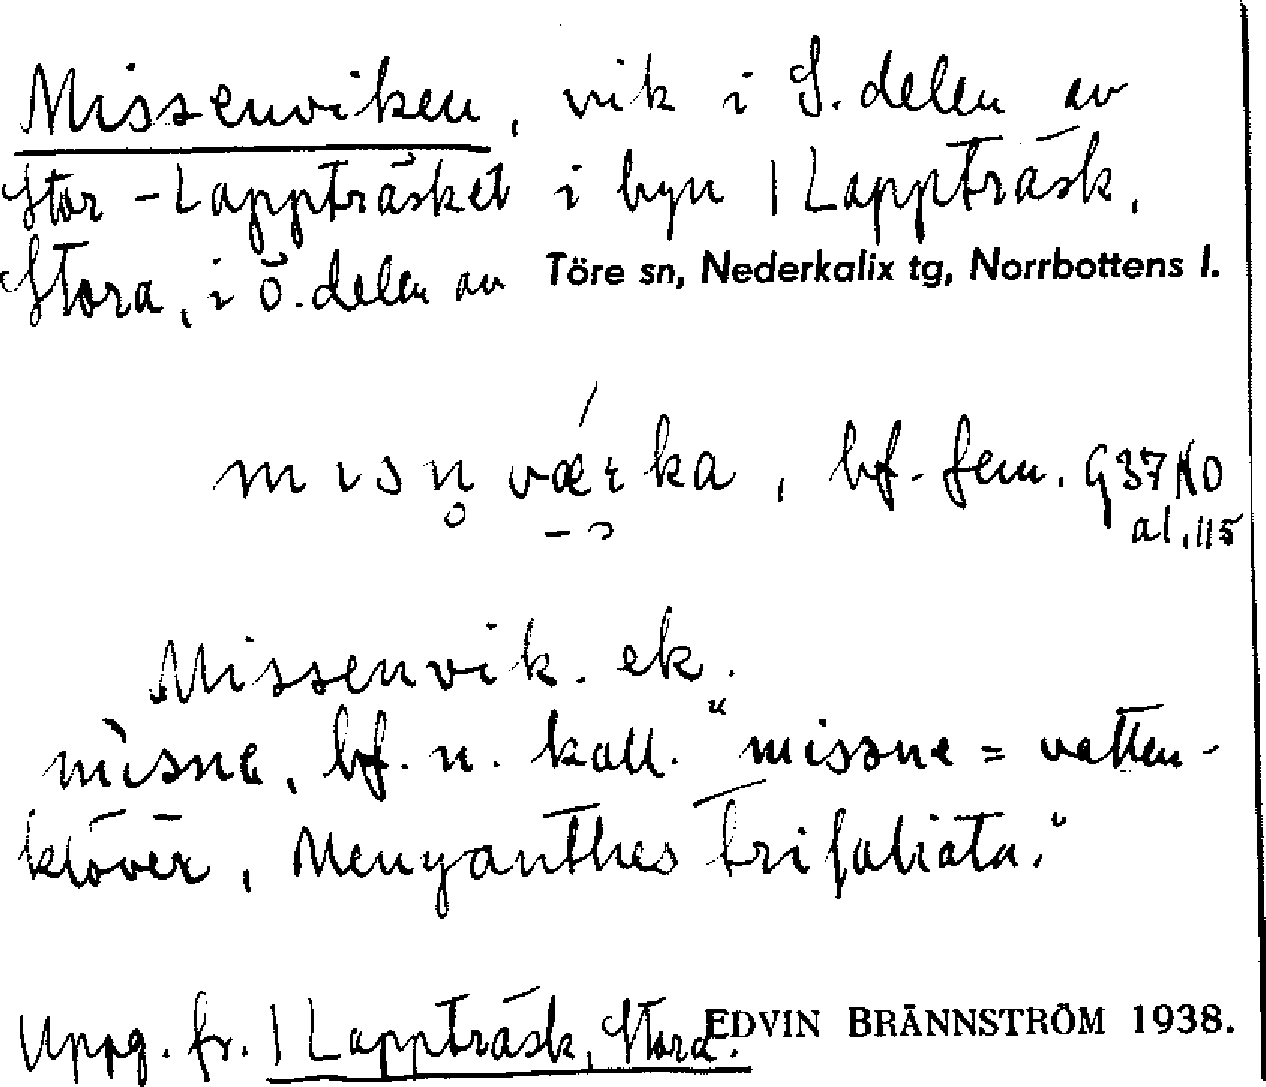 Missenviken, vik i S. delen av
Stor-Lappträsket i byn 1 Lappträsk,
Stora, i ö. delen av Töre sn, Nederkalix tg, Norrbottens l.
mısn̥ vǽrka, bf. fem. G37 NO
al. 115
Missenvik. ek.
mìsnɐ, bf. n. koll. "missne = vatten-
klöver, Menyanthes trifoliata."
Uppg. fr. 1 Lappträsk, Stora. EDVIN BRÄNNSTRÖM 1938.